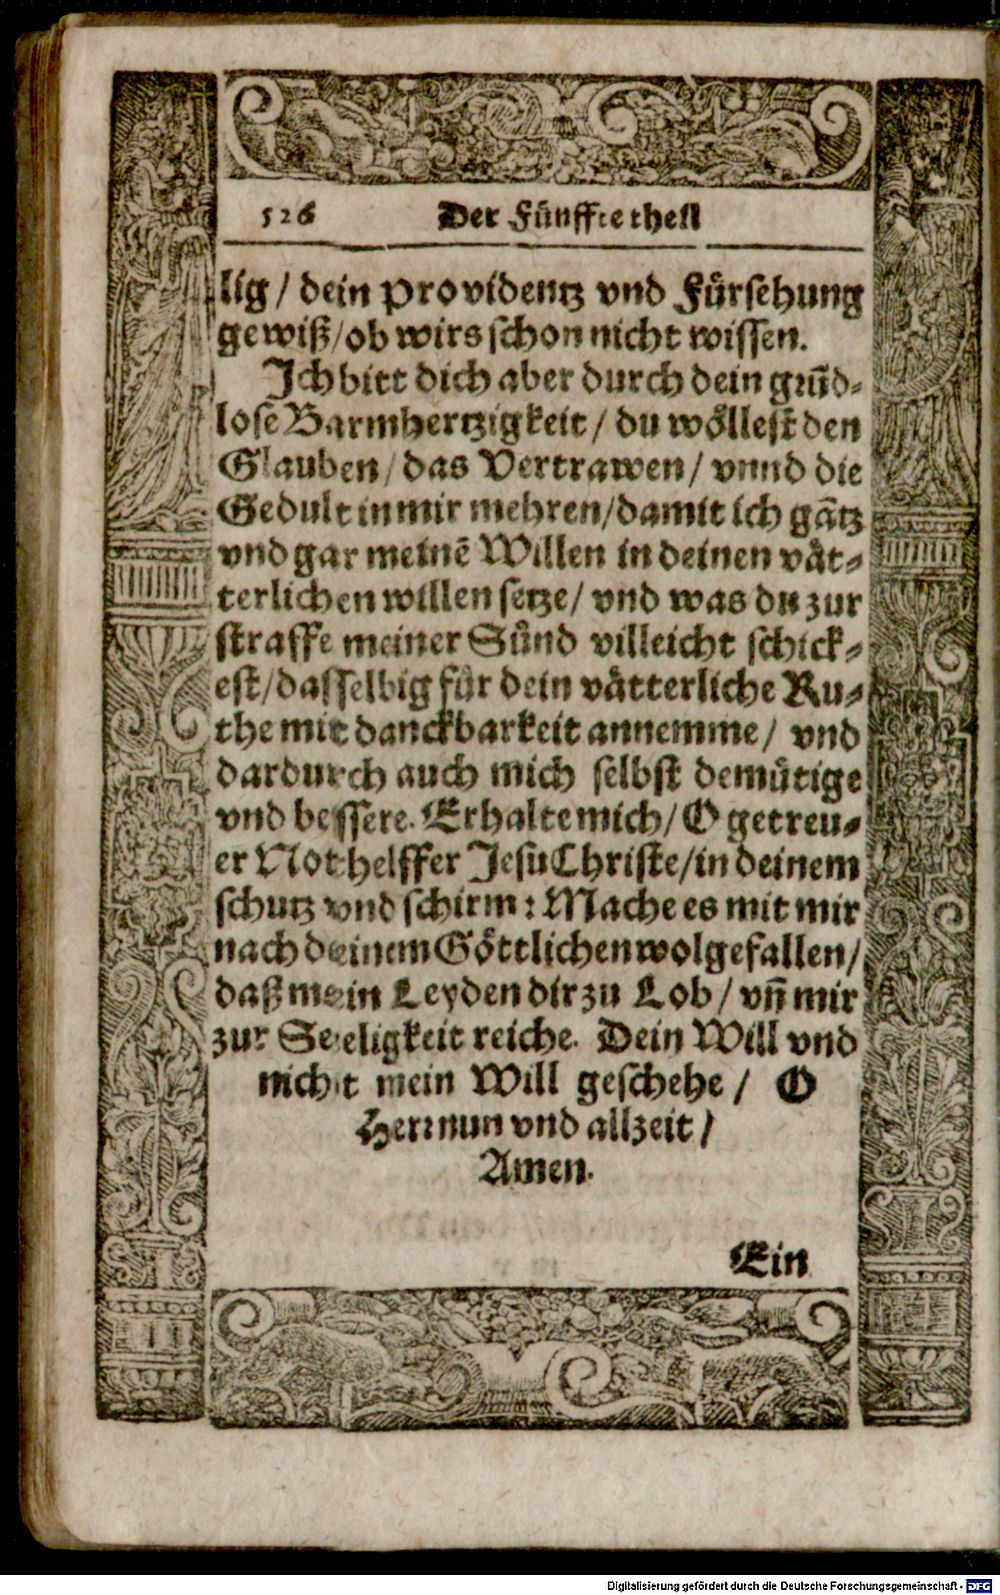 526 Der Fünffte theil
lig / dein providentz vnd Fürsehung
gewiß / ob wirs schon nicht wissen.
Ich bitt dich aber durch dein grūd-
lose Barmhertzigkeit / du wöllest den
Glauben / das Vertrawen / vnnd die
Gedult in mir mehren / damit ich gātz
vnd gar meinē Willen in deinen vät-
terlichen willen setze / vnd was du zur
straffe meiner Sünd villeicht schick-
est / dasselbig für dein vätterliche Ru-
the mit danckbarkeit annemme / vnd
dardurch auch mich selbst demütige
vnd bessere. Erhalte mich / O getreu-
er Nothelffer Jesu Christe / in deinem
schutz vnd schirm : Mache es mit mir
nach deinem Göttlichen wolgefallen /
daß mein Leyden dir zu Lob / vñ mir
zur Seeligkeit reiche. Dein Will vnd
nicht mein Will geschehe / O
Herr nun vnd allzeit /
Amen.
Ein
Digitalisierung gefördert durch die Deutsche Forschungsgemeinschaft - DFG